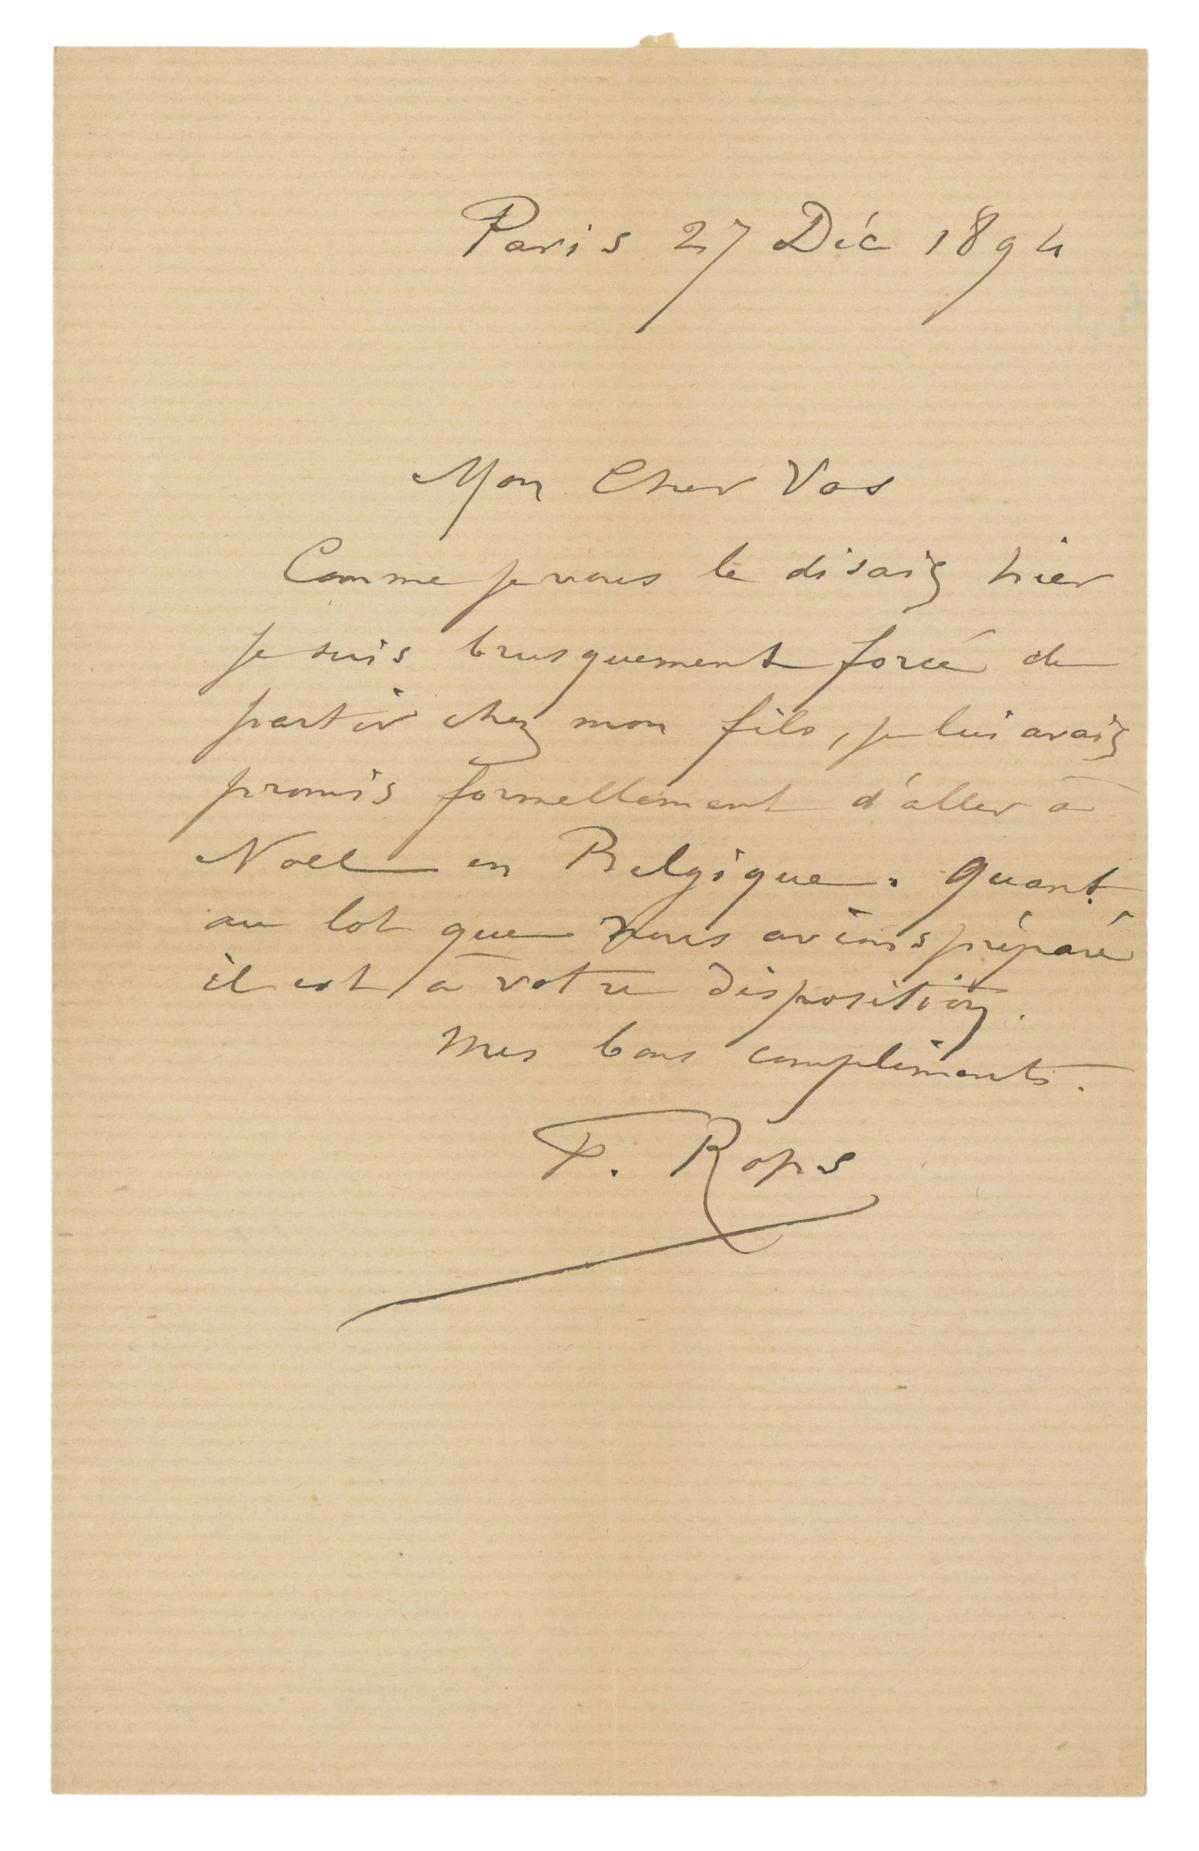 Paris 27 Déc 1894
Mon Cher Vos
Comme je vous le disais hier
je suis brusquement forcé de
partir chez mon fils, je lui avais
promis formellement d'aller à
Noël en Belgique. Quant
au lot que nous avions préparé
il est à votre disposition.
Mes bons compliments.
F. Rops